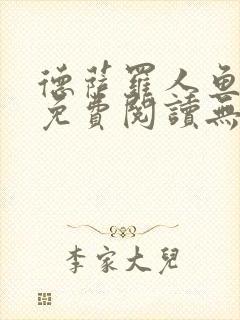 德薩羅人魚
免費閱讀無
李家大兒